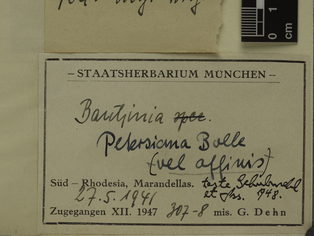 1 cm
0
– STAATSHERBARIUM MÜNCHEN –
Bauhinia spec.
Petersiana Bolle
(vel affinis)
Süd – Rhodesia, Marandellas. teste
27.5.1941 et 948.
Zugegangen XII. 1947 307-8 mis. G. Dehn